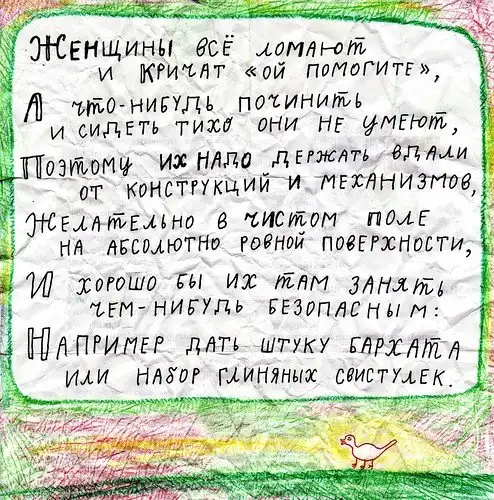 Женщины всё ломают
и кричат «ой помогите»,
А что-нибудь починить
и сидеть тихо они не умеют,
Поэтому их надо держать вдали
от конструкций и механизмов,
Желательно в чистом поле
на абсолютно ровной поверхности,
И хорошо бы их там занять
чем-нибудь безопасным:
Например дать штуку бархата
или набор глиняных свистулек.